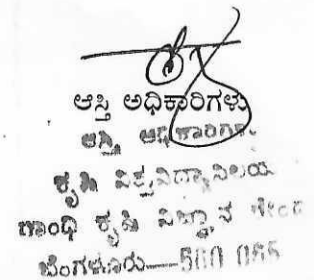 ಆಸ್ತಿ ಅಧಿಕಾರಿಗಳು
ಆಸ್ತಿ ಅಧಿಕಾರಿಗಳು
ಕೃಷಿ ವಿಶ್ವವಿದ್ಯಾನಿಲಯ
ಗಾಂಧಿ ಕೃಷಿ ವಿಜ್ಞಾನ ಕೇಂದ್ರ
ಬೆಂಗಳೂರು—560 065